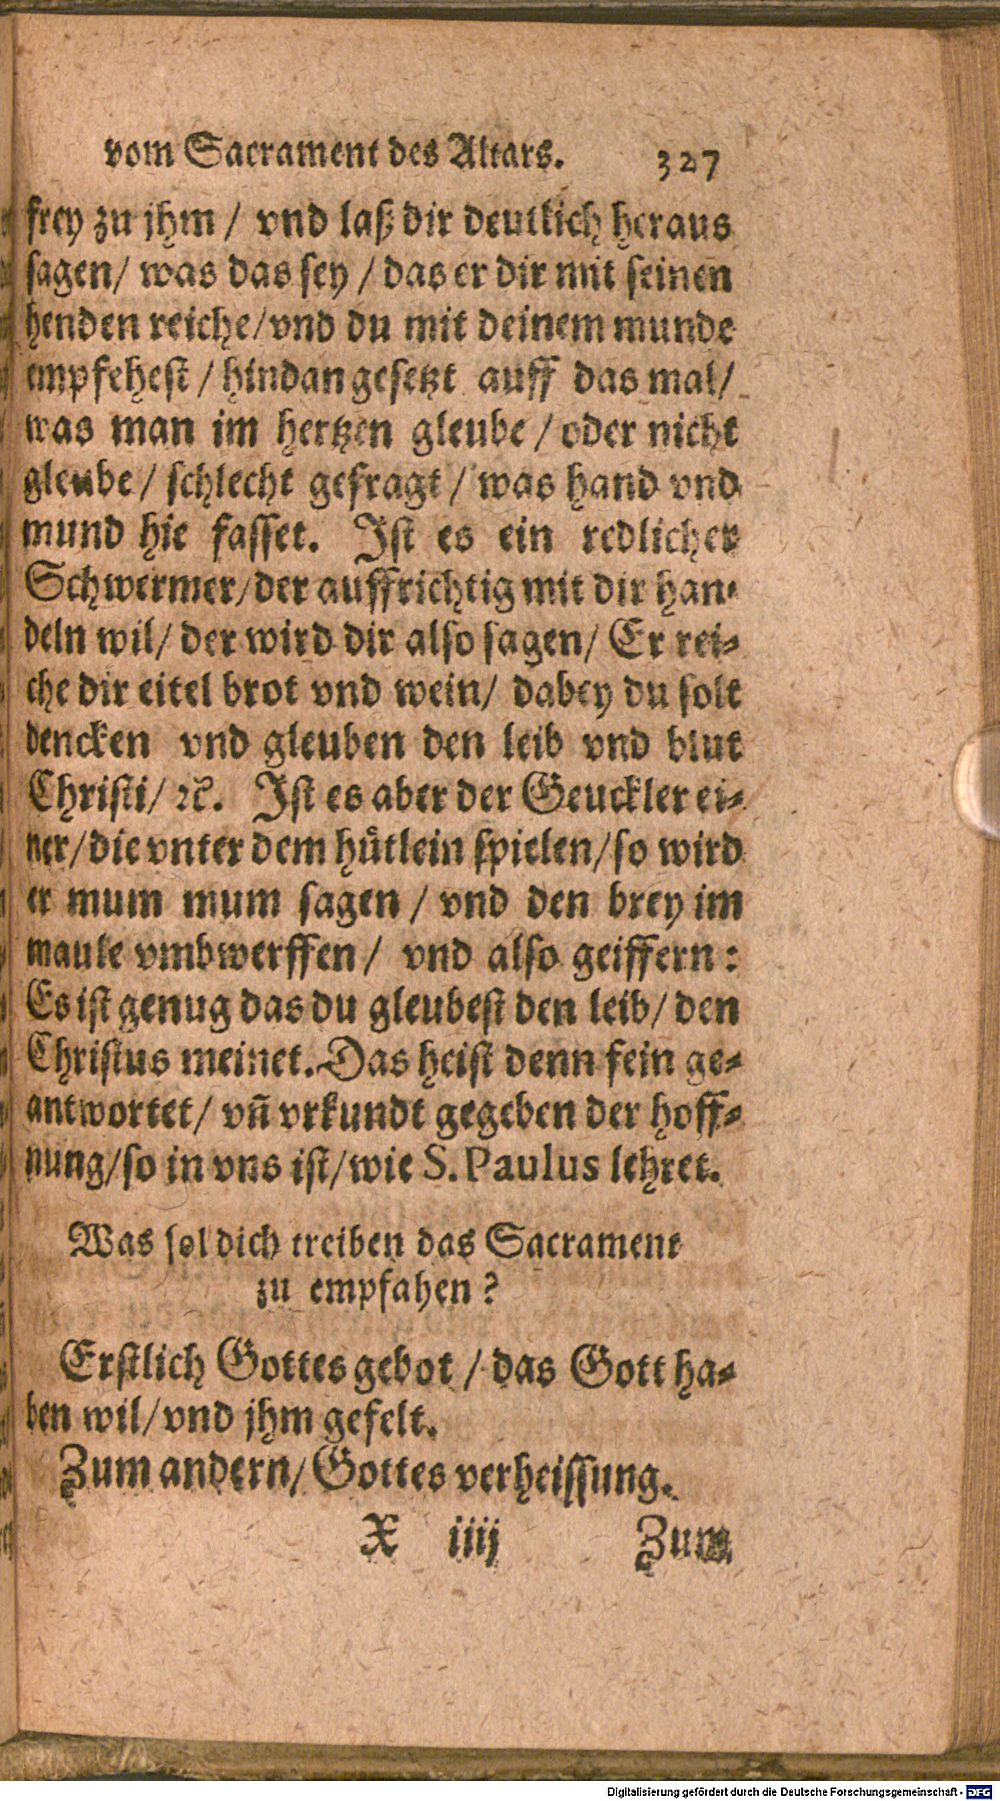 vom Sacrament des Altars. 327
frey zu jhm / vnd laß dir deutlich heraus
sagen / was das sey / das er dir mit seinen
henden reiche / vnd du mit deinem munde
empfehest / hindan gesetzt auff das mal /
was man im hertzen gleube / oder nicht
gleube / schlecht gefragt / was hand vnd
mund hie fasset. Ist es ein redlicher
Schwermer / der auffrichtig mit dir han-
deln wil / der wird dir also sagen / Er rei-
che dir eitel brot vnd wein / dabey du solt
dencken vnd gleuben den leib vnd blut
Christi / ꝛc. Ist es aber der Geuckler ei-
ner / die vnter dem huͤtlein spielen / so wird
er mum mum sagen / vnd den brey im
maule vmbwerffen / vnd also geiffern :
Es ist genug das du gleubest den leib / den
Christus meinet. Das heist denn fein ge-
antwortet / vñ vrkundt gegeben der hoff-
nung / so in vns ist / wie S. Paulus lehret.
Was sol dich treiben das Sacrament
zu empfahen ?
Erstlich Gottes gebot / das Gott ha-
ben wil / vnd jhm gefelt.
Zum andern / Gottes verheissung.
X iiij Zum
Digitalisierung gefördert durch die Deutsche Forschungsgemeinschaft - DFG